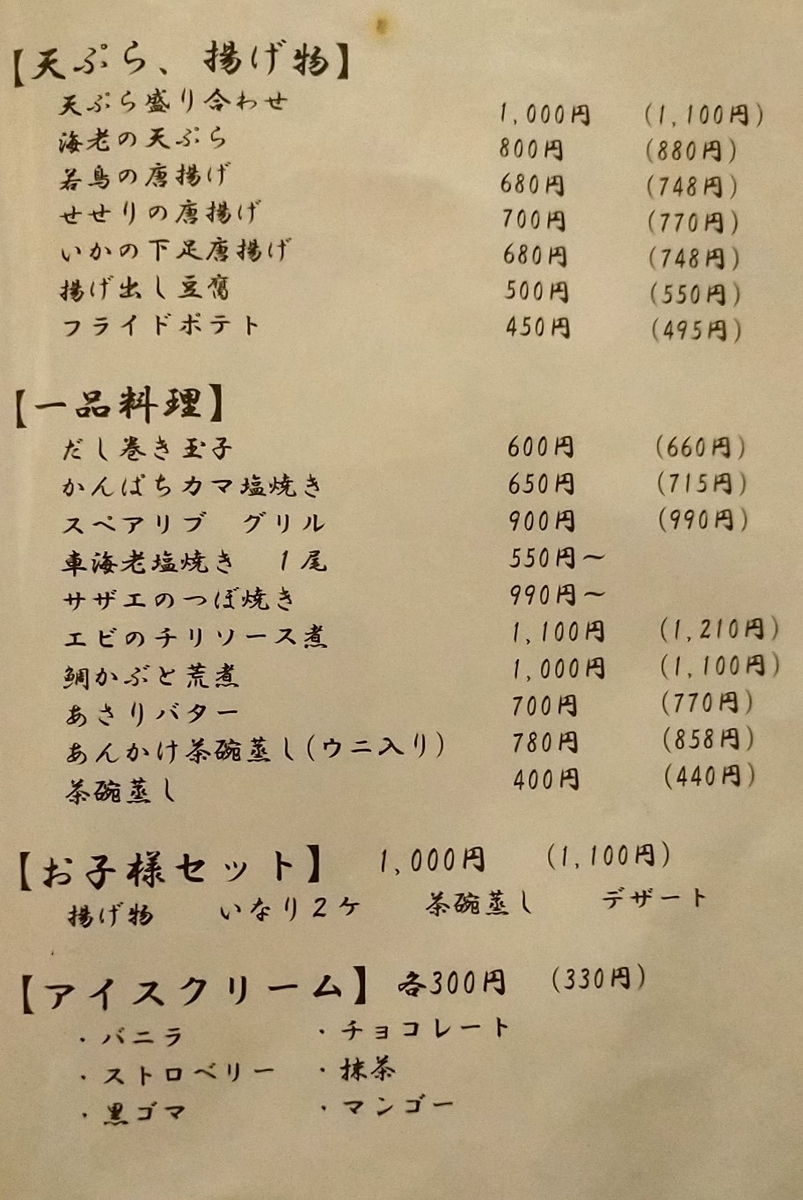 【天ぷら、揚げ物】
天ぷら盛り合わせ 1,000円 (1,100円)
海老の天ぷら 800円 (880円)
若鳥の唐揚げ 680円 (748円)
せせりの唐揚げ 700円 (770円)
いかの下足唐揚げ 680円 (748円)
揚げ出し豆腐 500円 (550円)
フライドポテト 450円 (495円)
【一品料理】
だし巻き玉子 600円 (660円)
かんぱちカマ塩焼き 650円 (715円)
スペアリブ グリル 900円 (990円)
車海老塩焼き 1尾 550円〜
サザエのつぼ焼き 990円〜
エビのチリソース煮 1,100円 (1,210円)
鯛かぶと荒煮 1,000円 (1,100円)
あさりバター 700円 (770円)
あんかけ茶碗蒸し(ウニ入り) 780円 (858円)
茶碗蒸し 400円 (440円)
【お子様セット】 1,000円 (1,100円)
揚げ物 いなり2ケ 茶碗蒸し デザート
【アイスクリーム】 各300円 (330円)
・バニラ ・チョコレート
・ストロベリー ・抹茶
・黒ゴマ ・マンゴー